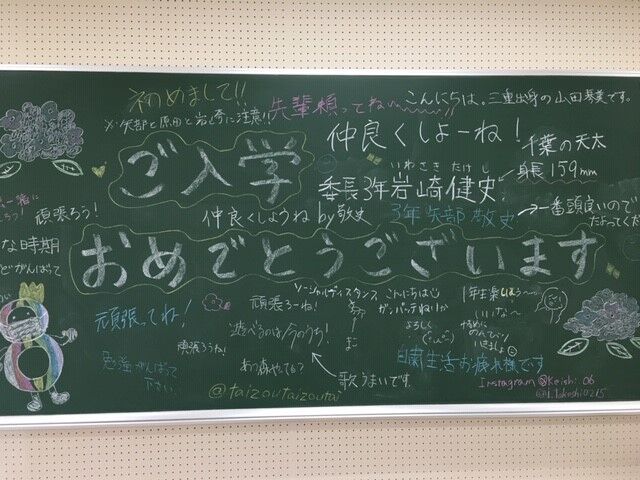 初めまして!!
※矢部と原田と岩崎に注意!!
先輩頼ってね〜!!
こんにちは。三重出身の山田琴美です。
仲良くしよーね!
千葉の天太
身長159mm
ご入学
いわさき たけし
委長3年岩崎健史
頑張ろう!
仲良くしようね by敬史
3年矢部 敬史
一番頭良いので
な時期
どがんばって
おめでとうございます
頑張ってね!
勉強がんばって
下さい。
頑張ろうね!
頑張ろーね!
遊べるのは今のうち!
あつ森やってる?
ソーシャルディスタンス
こんにちは
ガンバッテね!!
よろしく
歌うまいです。
いいな〜
自粛生活お疲れ様です
@taizoutaizoutai
Instagram @Keishi_06